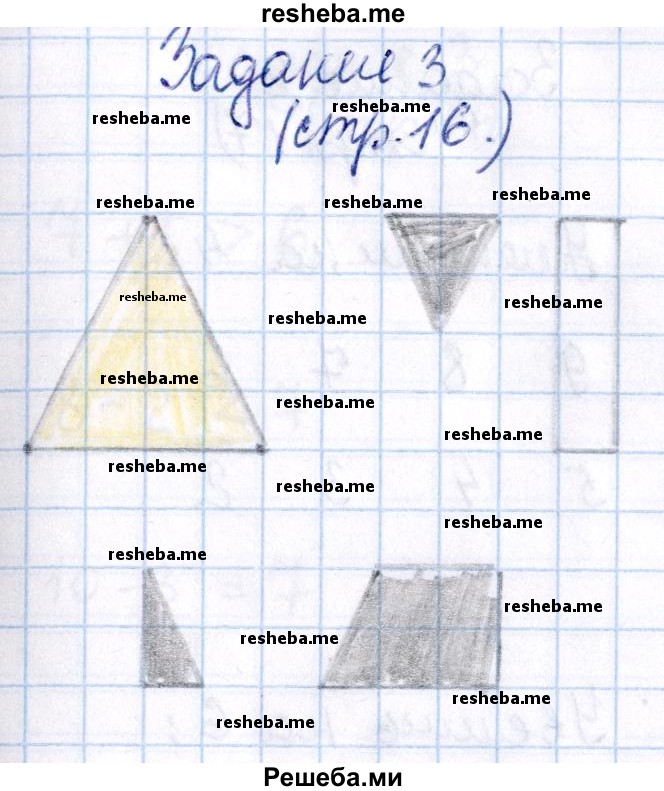 resheba.me
Задание 3
resheba.me
resheba.me
(стр. 16.)
resheba.me
resheba.me
resheba.me
resheba.me
resheba.me
resheba.me
resheba.me
resheba.me
resheba.me
resheba.me
resheba.me
resheba.me
resheba.me
resheba.me
resheba.me
resheba.me
resheba.me
Решеба.ми